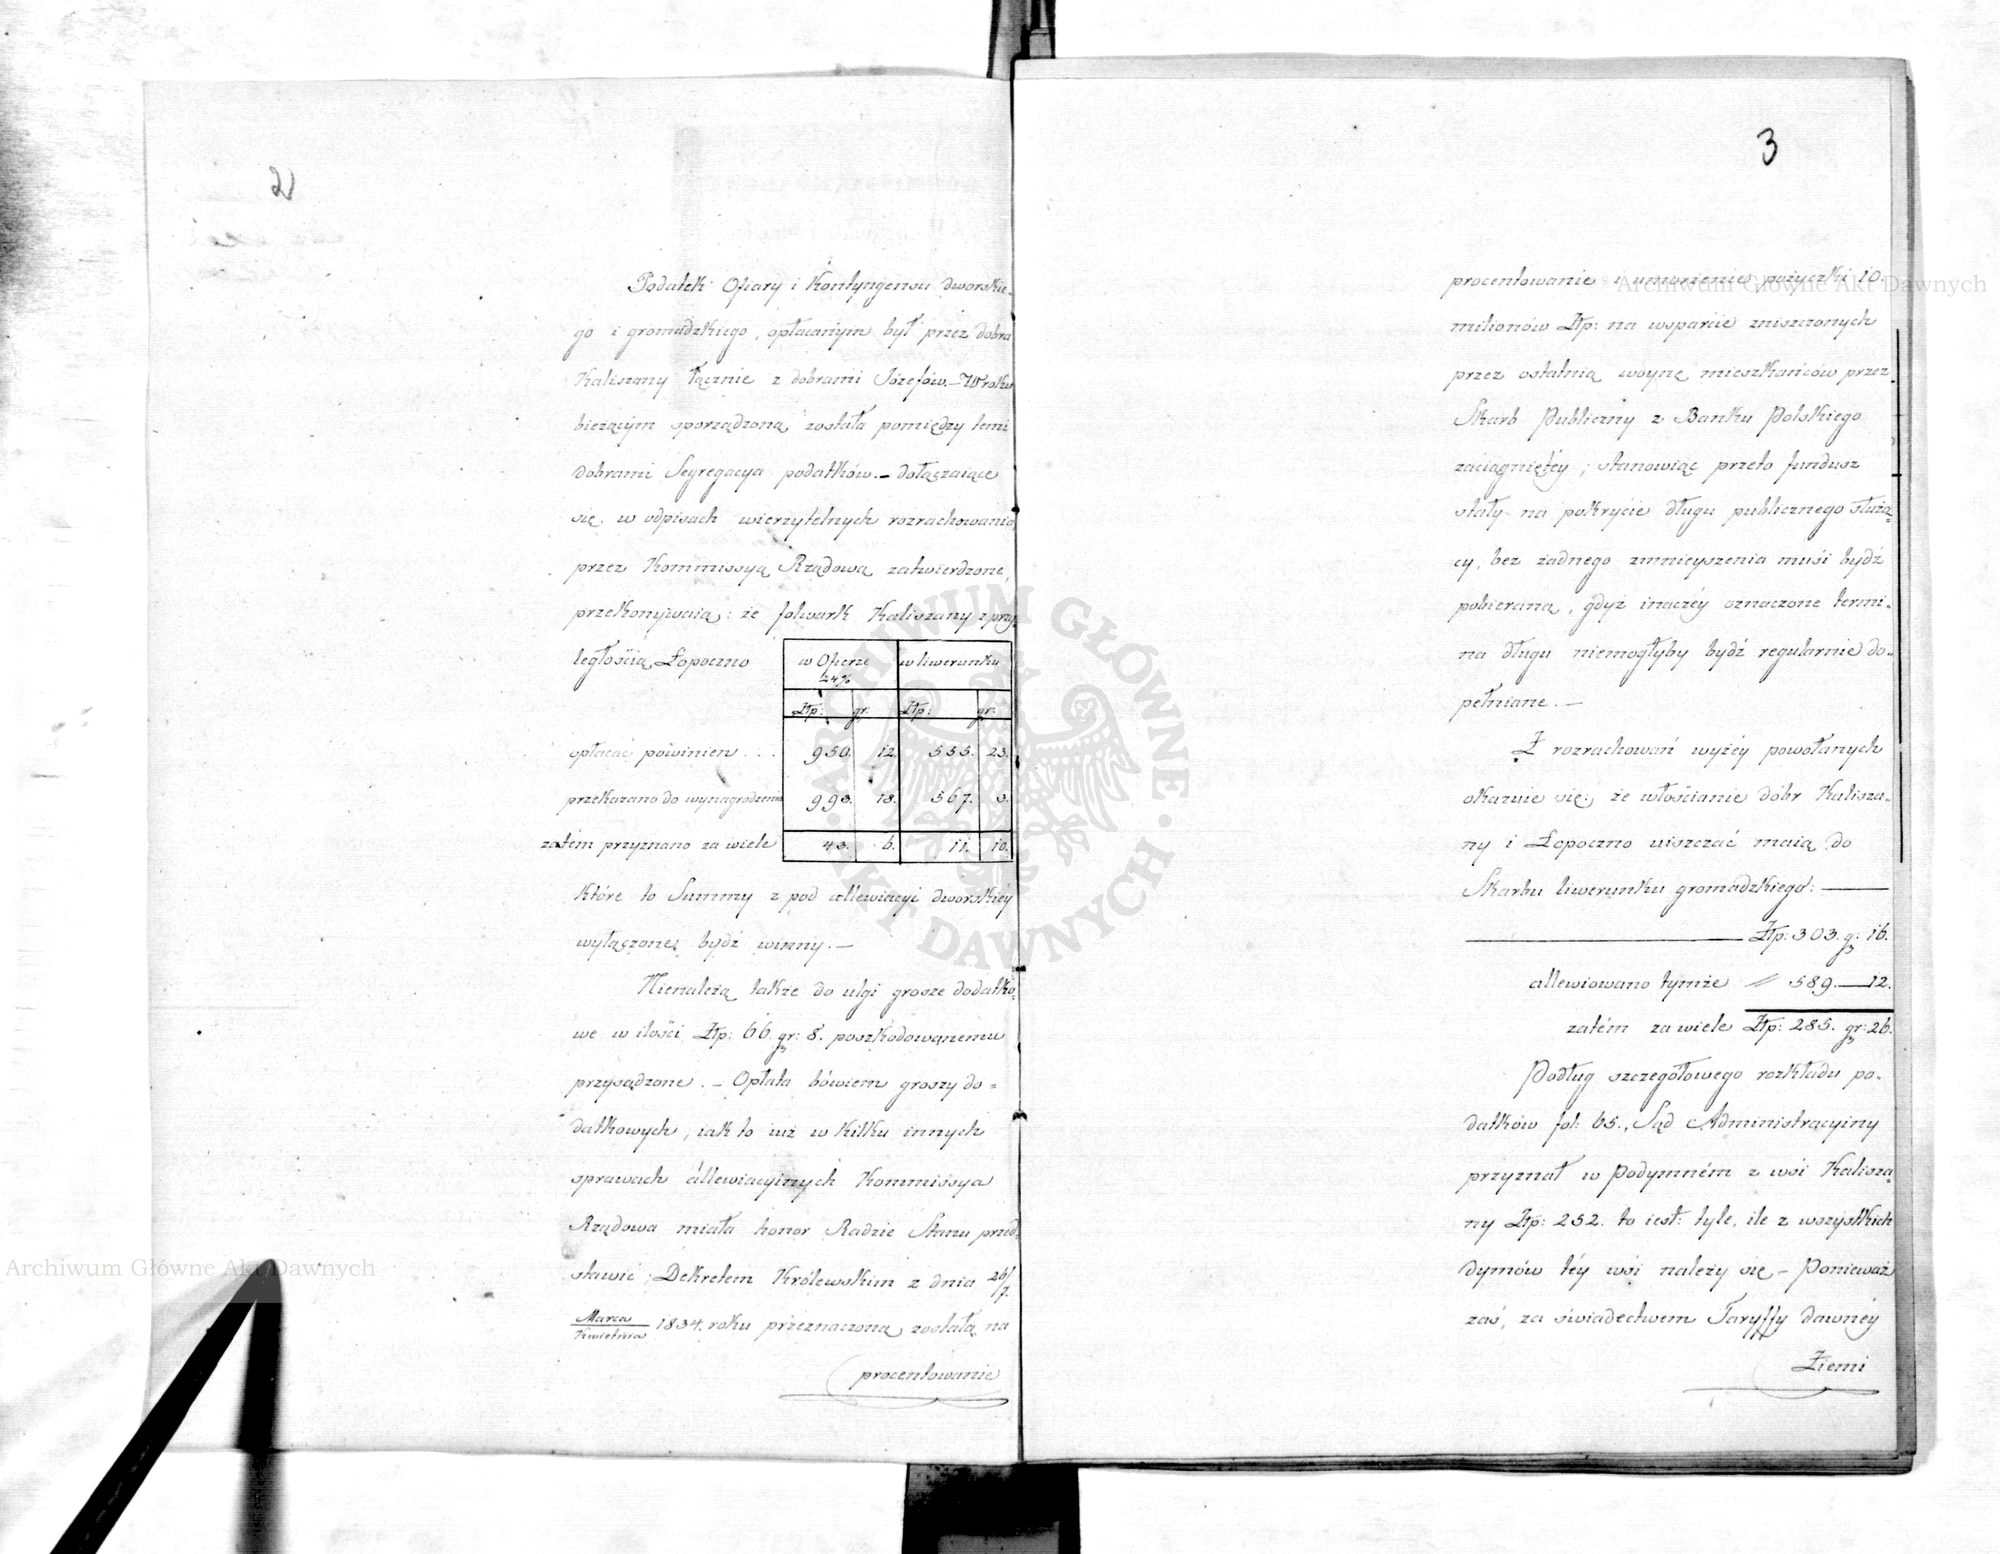 2
Podatek Ofiary i Kontyngensu dworskie-
go i gromadzkiego, opłacanym był przez dobra
Kaliszany łącznie z dobrami Józefów. – W roku
bieżącym sporządzoną została pomiędzy temi
dobrami Segregacya podatków. – dołączaiące
się w odpisach wierzytelnych rozrachowania
przez Kommissyą Rządową zatwierdzone,
przekonywaią: że folwark Kaliszany z przy-
ległością Łopoczno
w Ofierze w liwerunku
24%
Złp: gr: Złp: gr:
opłacać powinien . . . 950. 12. 555. 23.
przekazano do wynagrodzenia 993. 18. 567. 3.
zatém przyznano za wiele 43. 6. 11. 10.
które to Summy z pod allewiacyi dworskiéy
wyłączone bydź winny. –
Nienależą także do ulgi grosze dodatko-
we w ilości Złp: 66. gr: 8. poszkodowanemu
przysądzone. – Opłata bowiem groszy do=
datkowych, iak to iuż w kilku innych
sprawach allewiacyinych Kommissya
Rządowa miała honor Radzie Stanu przed-
stawić, Dekretem Królewskim z dnia 26/7.
Marca/Kwietnia 1834. roku przeznaczoną została na
procentowanie
3
procentowanie i umorzenie pożyczki 10.
milionów Złp: na wsparcie zniszczonych
przez ostatnią woynę mieszkańców przez
Skarb Publiczny z Banku Polskiego
zaciągniętéy; stanowiąc przeto fundusz
stały na pokrycie długu publicznego służą-
cy, bez żadnego zmnieyszenia musi bydź
pobieraną, gdyż inaczéy oznaczone termi-
na długu niemogłyby bydź regularnie do-
pełniane. –
Z rozrachowań wyżéy powołanych
okazuie się: że włościanie dóbr Kalisza-
ny i Łopoczno uiszczać maią do
Skarbu liwerunku gromadzkiego: –
– Złp: 303. gr: 16.
allewiowano tymże // 589. – 12.
zatém za wiele Złp: 285. gr: 26.
Podług szczegółowego rozkładu po-
datków fol: 65., Sąd Administracyiny
przyznał w Podymném z wsi Kalisza-
ny Złp: 252. to iest: tyle, ile z wszystkich
dymów téy wsi należy się – Ponieważ
zaś, za świadectwem Taryffy dawnéy
Ziemi
Archiwum Główne Akt Dawnych
Archiwum Główne Akt Dawnych
ARCHIWUM GŁÓWNE
AKT DAWNYCH